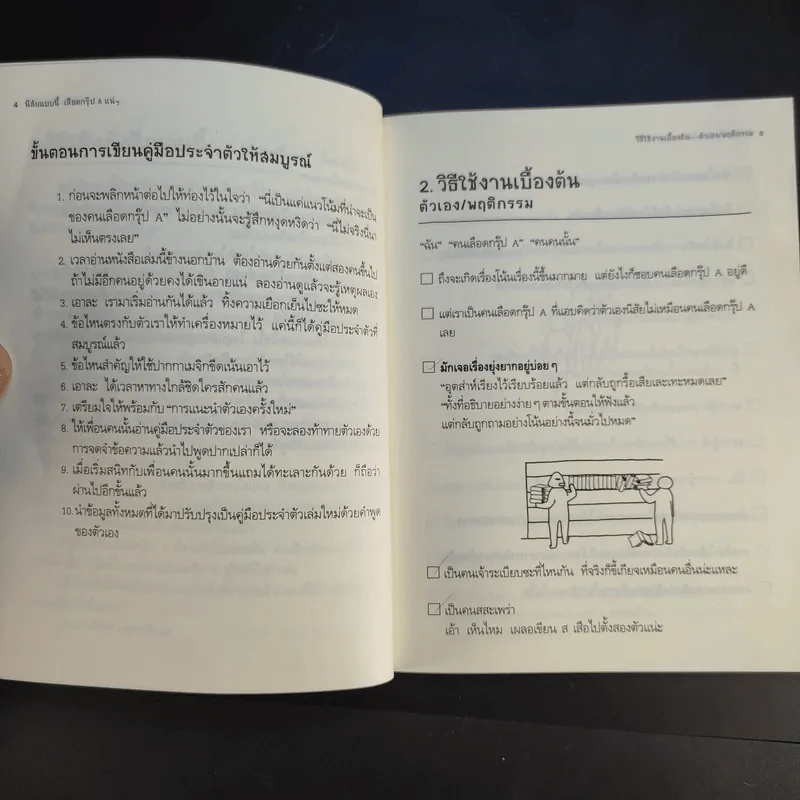 4 นิสัยแบบนี้ เลือดกรุ๊ป A แน่ๆ
ขั้นตอนการเขียนคู่มือประจำตัวให้สมบูรณ์
1. ก่อนจะพลิกหน้าต่อไปให้ท่องไว้ในใจว่า “นี่เป็นแค่แนวโน้มที่น่าจะเป็น
ของคนเลือดกรุ๊ป A” ไม่อย่างนั้นจะรู้สึกหงุดหงิดว่า “นี่ไม่จริงนี่นา
ไม่เห็นตรงเลย”
2. เวลาอ่านหนังสือเล่มนี้ข้างนอกบ้าน ต้องอ่านด้วยกันตั้งแต่สองคนขึ้นไป
ถ้าไม่มีอีกคนอยู่ด้วยคงได้เขินอายแน่ ลองอ่านดูแล้วจะรู้เหตุผลเอง
3. เอาละ เรามาเริ่มอ่านกันได้แล้ว ทิ้งความเยือกเย็นไปซะให้หมด
4. ข้อไหนตรงกับตัวเราให้ทำเครื่องหมายไว้ แค่นี้ก็ได้คู่มือประจำตัวที่
สมบูรณ์แล้ว
5. ข้อไหนสำคัญให้ใช้ปากกาเมจิกขีดเน้นเอาไว้
6. เอาละ ได้เวลาหาทางใกล้ชิดใครสักคนแล้ว
7. เตรียมใจให้พร้อมกับ “การแนะนำตัวเองครั้งใหม่”
8. ให้เพื่อนคนนั้นอ่านคู่มือประจำตัวของเรา หรือจะลองท้าทายตัวเองด้วย
การจดจำข้อความแล้วนำไปพูดปากเปล่าก็ได้
9. เมื่อเริ่มสนิทกับเพื่อนคนนั้นมากขึ้นแถมได้ทะเลาะกันด้วย ก็ถือว่า
ผ่านไปอีกขั้นแล้ว
10. นำข้อมูลทั้งหมดที่ได้มาปรับปรุงเป็นคู่มือประจำตัวเล่มใหม่ด้วยคำพูด
ของตัวเอง
วิธีใช้งานเบื้องต้น...ตัวเอง/พฤติกรรม 5
2. วิธีใช้งานเบื้องต้น
ตัวเอง/พฤติกรรม
“ฉัน” “คนเลือดกรุ๊ป A” “คนคนนั้น”
ถึงจะเกิดเรื่องโน้นเรื่องนี้ขึ้นมากมาย แต่ยังไงก็ชอบคนเลือดกรุ๊ป A อยู่ดี
แต่เราเป็นคนเลือดกรุ๊ป A ที่แอบคิดว่าตัวเองนิสัยไม่เหมือนคนเลือดกรุ๊ป A
เลย
มักเจอเรื่องยุ่งยากอยู่บ่อยๆ
“อุตส่าห์เรียงไว้เรียบร้อยแล้ว แต่กลับถูกรื้อเสียเละเทะหมดเลย”
“ทั้งที่อธิบายอย่างง่ายๆ ตามขั้นตอนให้ฟังแล้ว
แต่กลับถูกถามอย่างโน้นอย่างนี้จนมั่วไปหมด”
เป็นคนเจ้าระเบียบซะที่ไหนกัน ที่จริงก็ขี้เกียจเหมือนคนอื่นน่ะแหละ
เป็นคนสสะเพร่า
เอ้า เห็นไหม เผลอเขียน ส เสือไปตั้งสองตัวแน่ะ